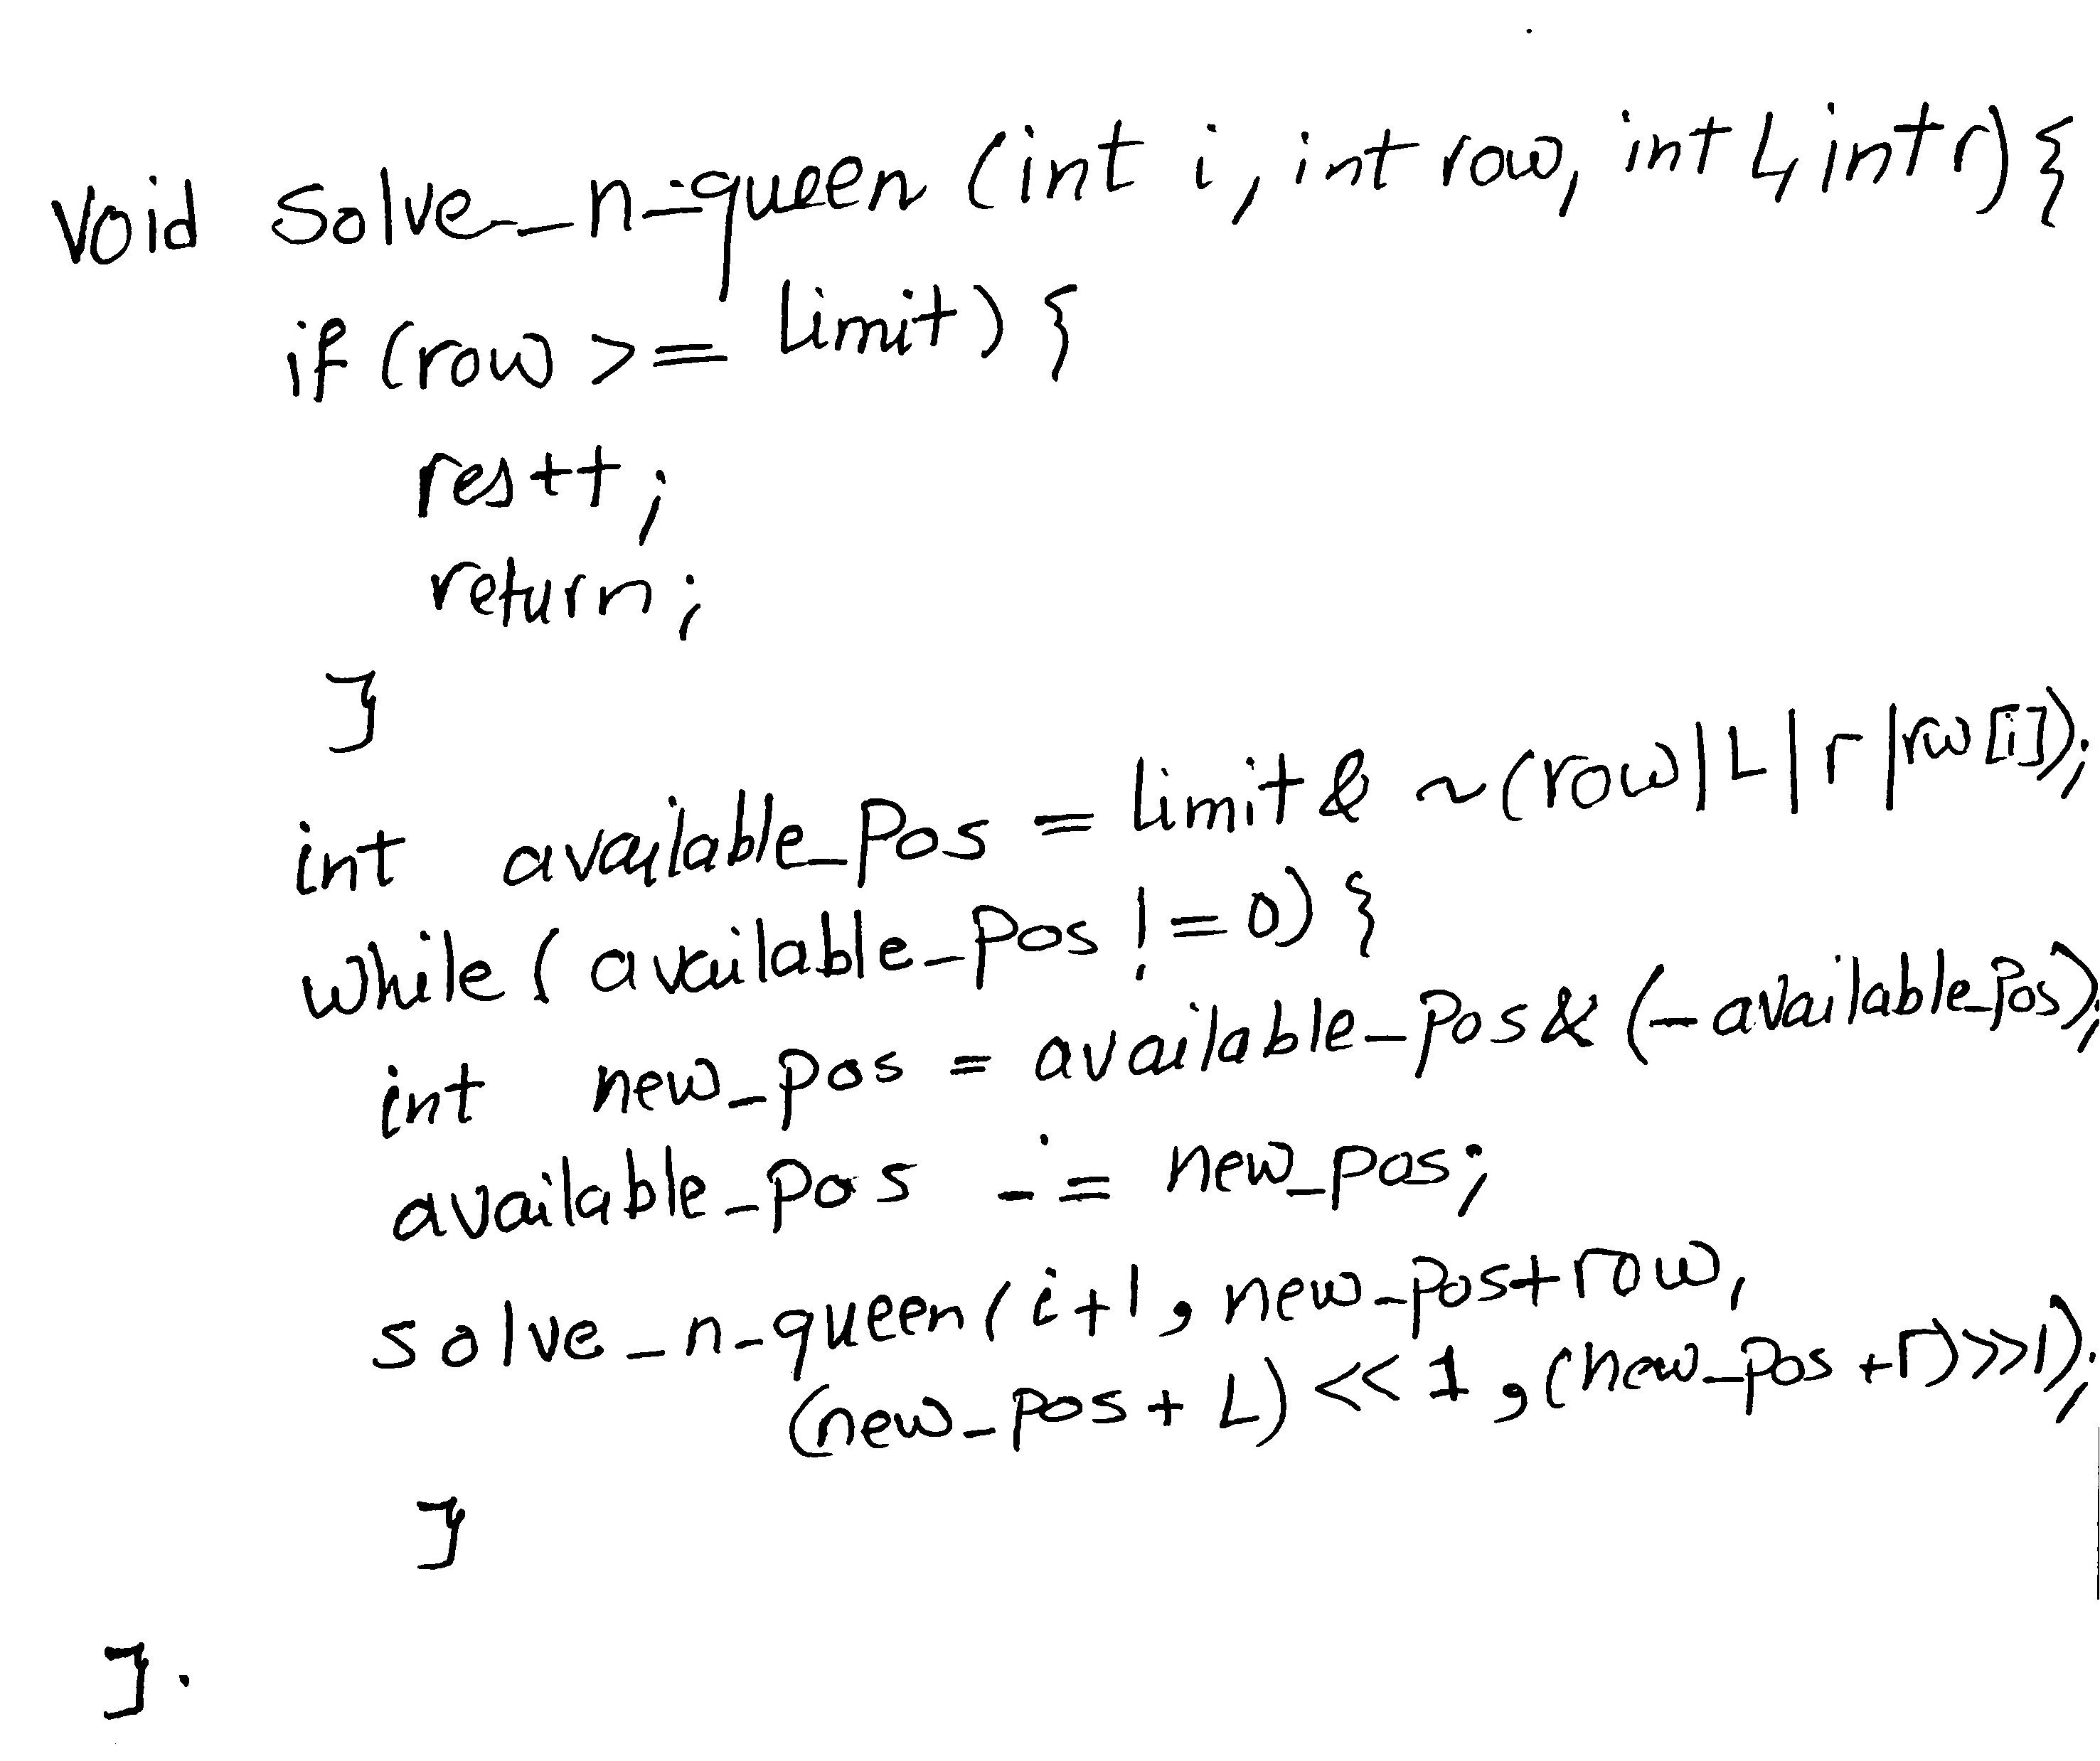 void solve_n_queen (int i, int row, int L, int r) {
if (row >= limit) {
res++;
return;
}
int available_pos = limit & ~(row|L|r|rw[i]);
while (available_pos != 0) {
int new_pos = available_pos & (-available_pos);
available_pos -= new_pos;
solve_n_queen(i+1, new_pos+row,
(new_pos + L) << 1, (new_pos + r)>>1);
}
}.